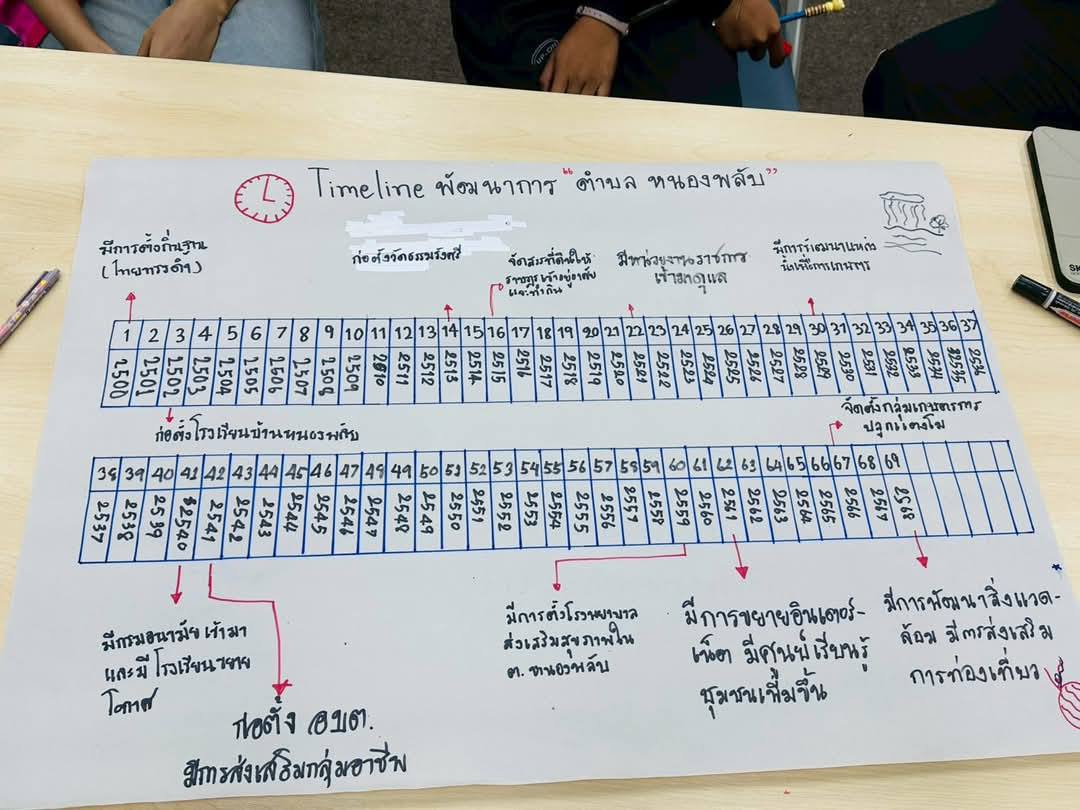 Timeline พัฒนาการ "ตำบล หนองพลับ"
มีการตั้งถิ่นฐาน
(ไทยทรงดำ)
ก่อตั้งวัดธรรมรังศรี
จัดสรรที่ดินให้
ราษฎรเข้าอยู่อาศัย
และทำกิน
มีหน่วยงานราชการ
เข้ามาดูแล
มีการพัฒนาแหล่ง
น้ำเพื่อการเกษตร
1 2 3 4 5 6 7 8 9 10 11 12 13 14 15 16 17 18 19 20 21 22 23 24 25 26 27 28 29 30 31 32 33 34 35 36 37
2500 2501 2502 2503 2504 2505 2506 2507 2508 2509 2510 2511 2512 2513 2514 2515 2516 2517 2518 2519 2520 2521 2522 2523 2524 2525 2526 2527 2528 2529 2530 2531 2532 2533 2534 2535 2536
ก่อตั้งโรงเรียนบ้านหนองพลับ
จัดตั้งกลุ่มเกษตรการ
ปลูกแตงโม
38 39 40 41 42 43 44 45 46 47 48 49 50 51 52 53 54 55 56 57 58 59 60 61 62 63 64 65 66 67 68 69
2537 2538 2539 2540 2541 2542 2543 2544 2545 2546 2547 2548 2549 2550 2551 2552 2553 2554 2555 2556 2557 2558 2559 2560 2561 2562 2563 2564 2565 2566 2567 2568
มีกรมอนามัยเข้ามา
และมีโรงเรียนขยาย
โอกาศ
ก่อตั้ง อบต.
มีการส่งเสริมกลุ่มอาชีพ
มีการตั้งโรงพยาบาล
ส่งเสริมสุขภาพใน
ต. หนองพลับ
มีการขยายอินเตอร์-
เน็ต มีศูนย์เรียนรู้
ชุมชนเพิ่มขึ้น
มีการพัฒนาสิ่งแวด-
ล้อม มีการส่งเสริม
การท่องเที่ยว